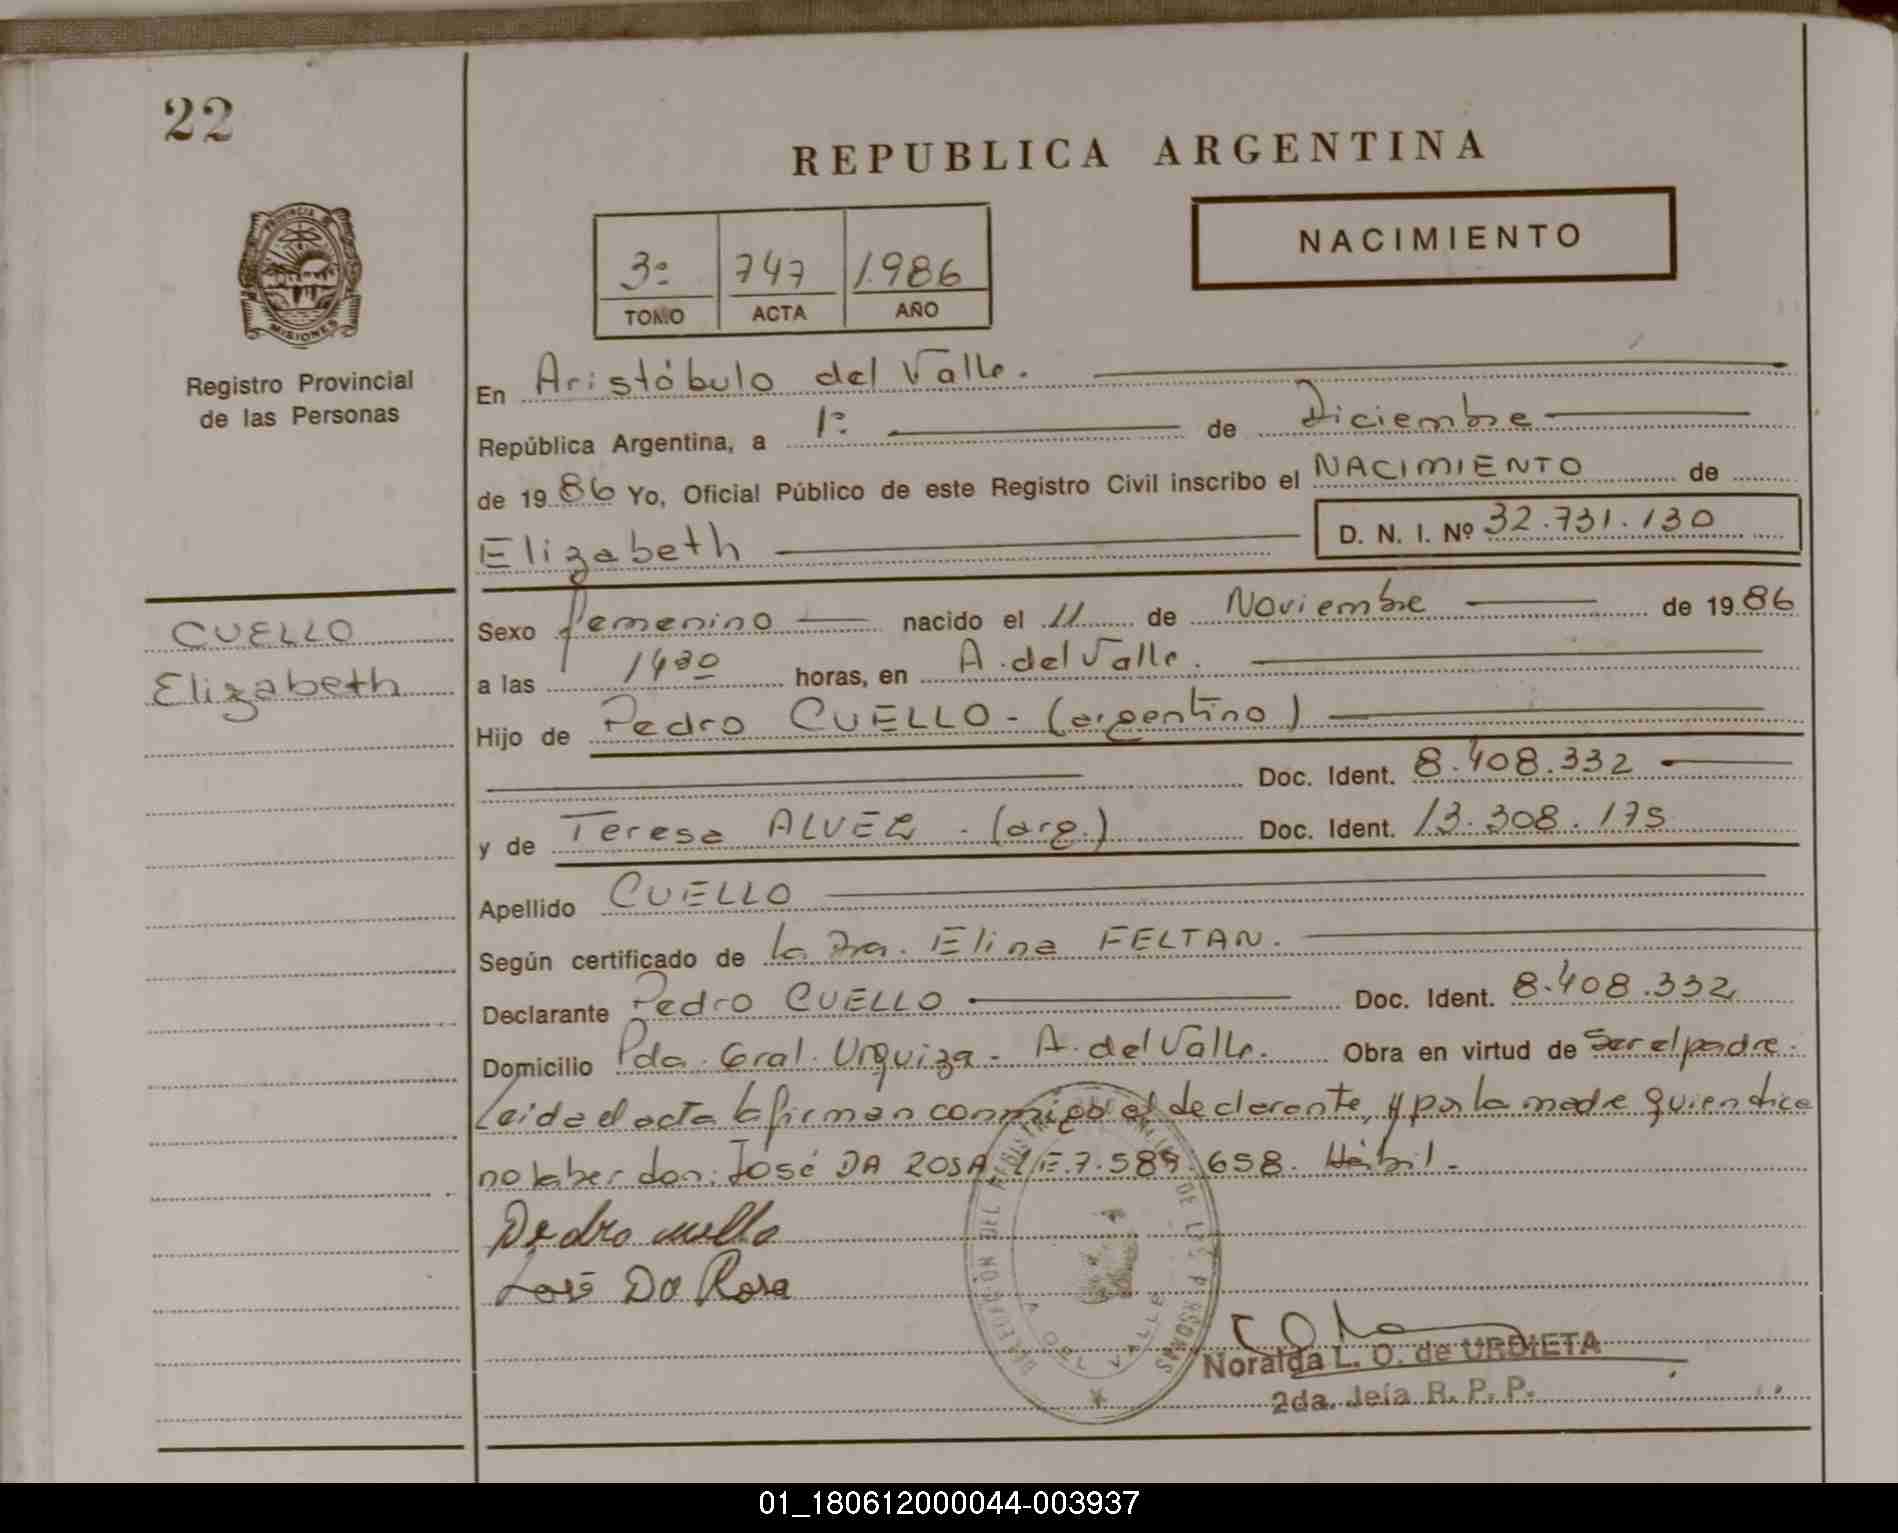 22
REPUBLICA ARGENTINA
NACIMIENTO
3º 747 1.986
TOMO ACTA AÑO
PROVINCIA DE
MISIONES
Registro Provincial
de las Personas
CUELLO
Elizabeth
En Aristóbulo del Valle.
República Argentina, a 1º de Diciembre
de 1986 Yo, Oficial Público de este Registro Civil inscribo el NACIMIENTO de
Elizabeth D. N. I. Nº 32.731.130
Sexo femenino nacido el 11 de Noviembre de 1986
a las 1430 horas, en A. del Valle.
Hijo de Pedro CUELLO - (argentino)
Doc. Ident. 8.408.332
y de Teresa ALVEZ - (arg.) Doc. Ident. 13.308.175
Apellido CUELLO
Según certificado de la Dra. Elina FELTAN.
Declarante Pedro CUELLO Doc. Ident. 8.408.332
Domicilio Pda. Gral. Urquiza - A. del Valle. Obra en virtud de Ser el padre.
Leida el acta la firman conmigo el declarante, y por la madre quien dice
no saber don: José DA ROSA L.E. 7.589.658. Hábil.
Pedro cuello
José Da Rosa
DIRECCIÓN DEL REGISTRO PROVINCIAL DE LAS PERSONAS
A. DEL VALLE
Noralda L. O. de URDIETA
2da. Jefa R. P. P.
01_180612000044-003937